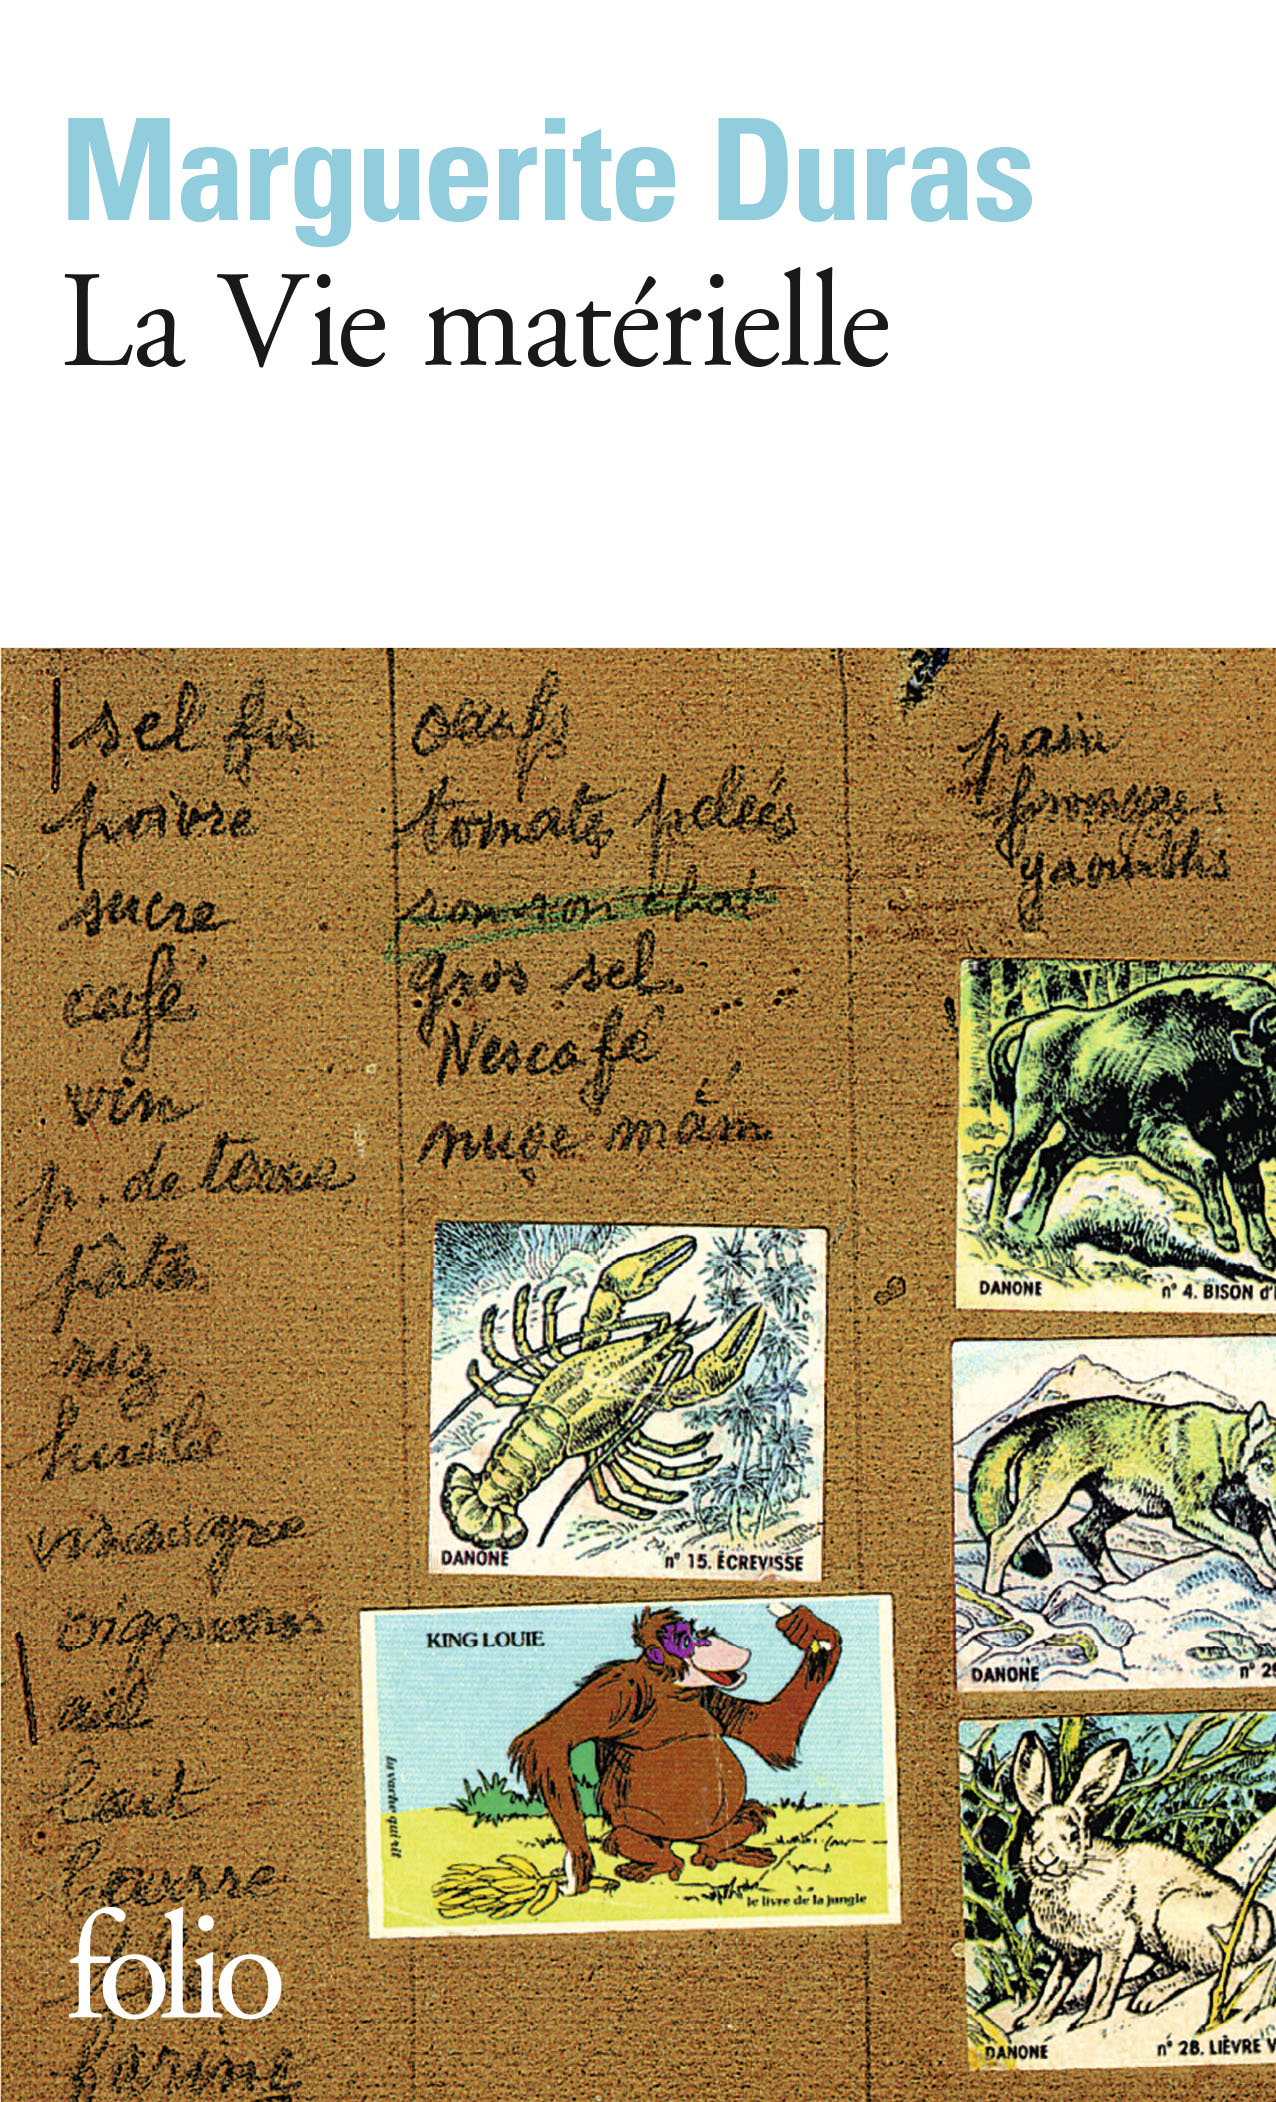 Marguerite Duras
La Vie matérielle
sel fin
poivre
sucre
café
vin
p. de terre
pâtes
riz
huile
vinaigre
oignons
ail
lait
beurre
farine
oeufs
tomates pelées
gros sel
Nescafé
nuoc mâm
pain
fromages
yaourths
DANONE
n° 15. ÉCREVISSE
KING LOUIE
la vache qui rit
le livre de la jungle
DANONE
n° 4. BISON d'
DANONE
n° 29
DANONE
n° 28. LIÈVRE V
folio